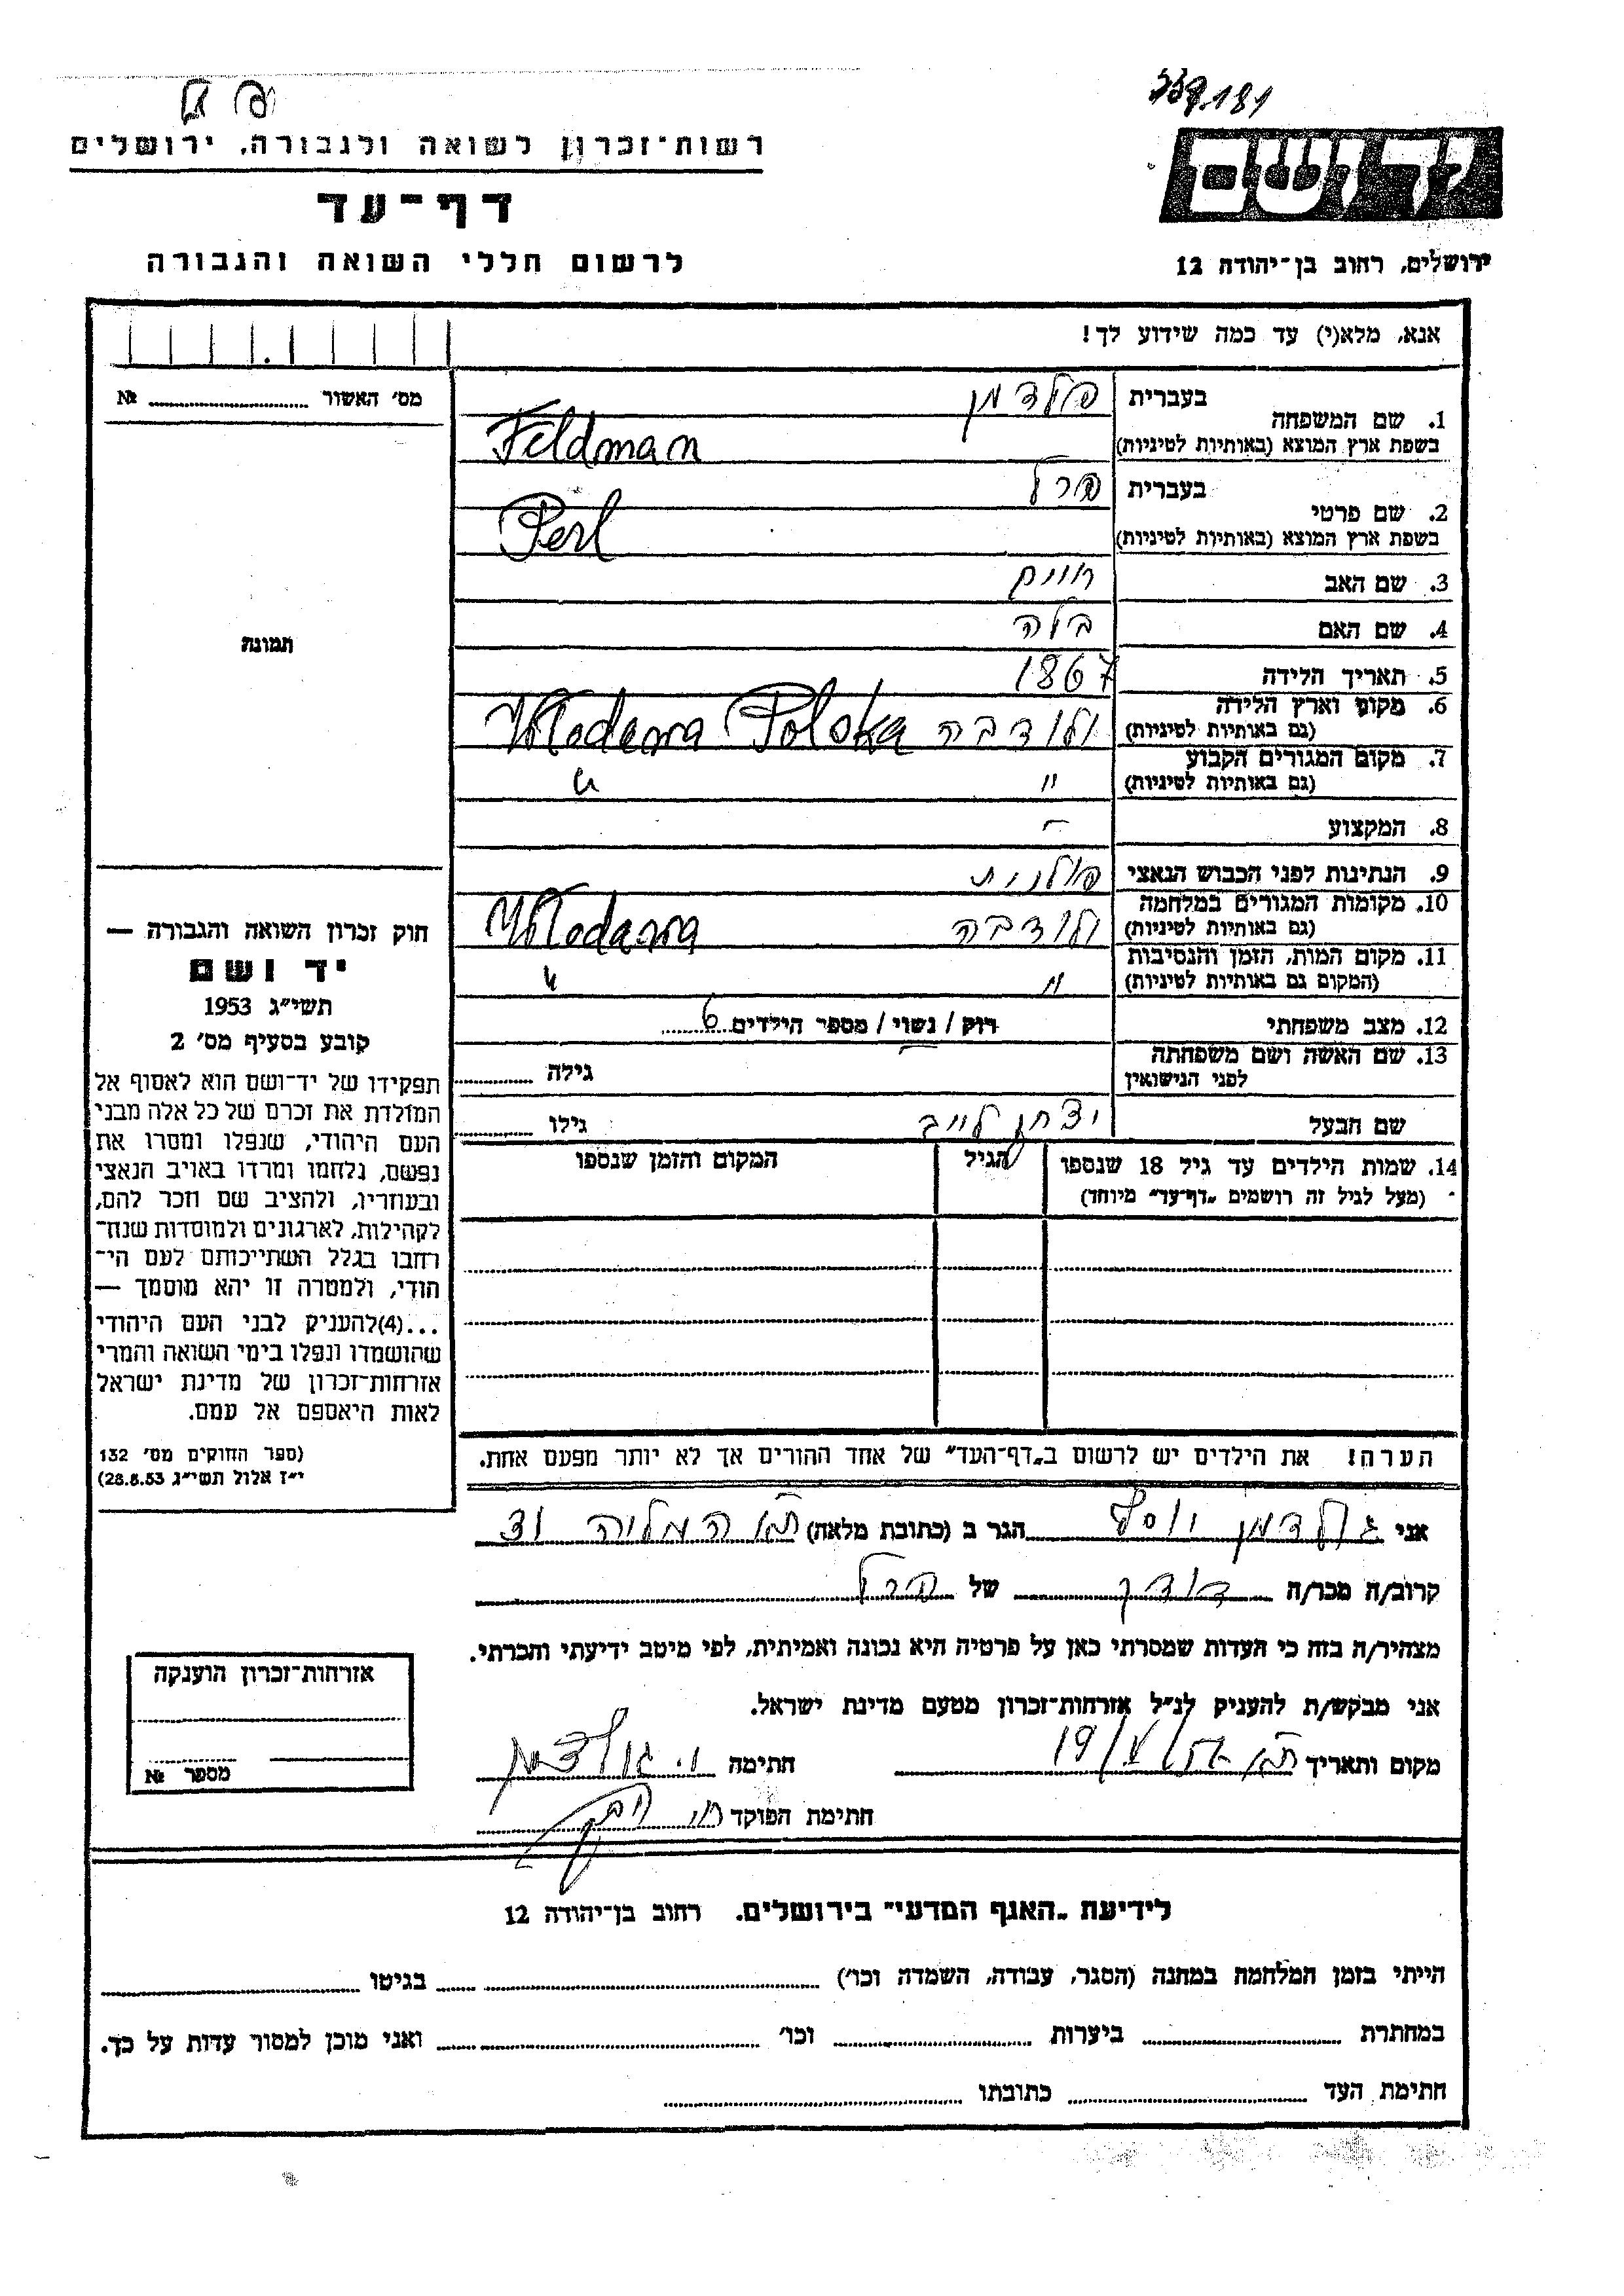 559.181
יד ושם
ירושלים, רחוב בן־יהודה 12
רשות־זכרון לשואה ולגבורה, ירושלים
דף־עד
לרשום חללי השואה והגבורה
אנא, מלא(י) עד כמה שידוע לך!
מס׳ האשור № ..........
תמונה
בעברית פלדמן
1. שם המשפחה
בשפת ארץ המוצא (באותיות לטיניות) Feldman
בעברית פרל
2. שם פרטי
בשפת ארץ המוצא (באותיות לטיניות) Perl
3. שם האב חיים
4. שם האם בלה
5. תאריך הלידה 1867
6. מקום וארץ הלידה ולודבה Wlodawa Polska
(גם באותיות לטיניות)
7. מקום המגורים הקבוע " "
(גם באותיות לטיניות)
8. המקצוע -
9. הנתינות לפני הכבוש הנאצי פולנית
10. מקומות המגורים במלחמה ולודבה Wlodawa
(גם באותיות לטיניות)
11. מקום המות, הזמן והנסיבות " "
(המקום גם באותיות לטיניות)
12. מצב משפחתי רוק / נשוי / מספר הילדים 6
13. שם האשה ושם משפחתה - גילה
לפני הנישואין
שם הבעל יצחק לייב גילו
14. שמות הילדים עד גיל 18 שנספו הגיל המקום והזמן שנספו
(מעל לגיל זה רושמים „דף־עד״ מיוחד)
חוק זכרון השואה והגבורה —
יד ושם
תשי״ג 1953
קובע בסעיף מס׳ 2
תפקידו של יד־ושם הוא לאסוף אל
המולדת את זכרם של כל אלה מבני
העם היהודי, שנפלו ומסרו את
נפשם, נלחמו ומרדו באויב הנאצי
ובעוזריו, ולהציב שם וזכר להם,
לקהילות, לארגונים ולמוסדות שנח־
רחבו בגלל השתייכותם לעם הי־
הודי, ולמטרה זו יהא מוסמך —
...(4)להעניק לבני העם היהודי
שהושמדו ונפלו בימי השואה והמרי
אזרחות־זכרון של מדינת ישראל
לאות היאספם אל עמם.
(ספר החוקים מס׳ 132
י״ז אלול תשי״ג 28.8.53)
הערה! את הילדים יש לרשום ב„דף־העד״ של אחד ההורים אך לא יותר מפעם אחת.
אני גולדמן יוסף הגר ב (כתובת מלאה) ת"א
קרוב/ה מכר/ה של פרל
מצהיר/ה בזה כי העדות שמסרתי כאן על פרטיה היא נכונה ואמיתית, לפי מיטב ידיעתי והכרתי.
אני מבקש/ת להעניק לנ״ל אזרחות־זכרון מטעם מדינת ישראל.
מקום ותאריך ת"א חתימה י. גולדמן
חתימת הפוקד
אזרחות־זכרון הוענקה
מספר №
לידיעת „האגף המדעי״ בירושלים. רחוב בן־יהודה 12
הייתי בזמן המלחמה במחנה (הסגר, עבודה, השמדה וכו׳) .......... בגיטו ..........
במחתרת .......... ביערות .......... וכו׳ .......... ואני מוכן למסור עדות על כך.
חתימת העד .......... כתובתו ..........